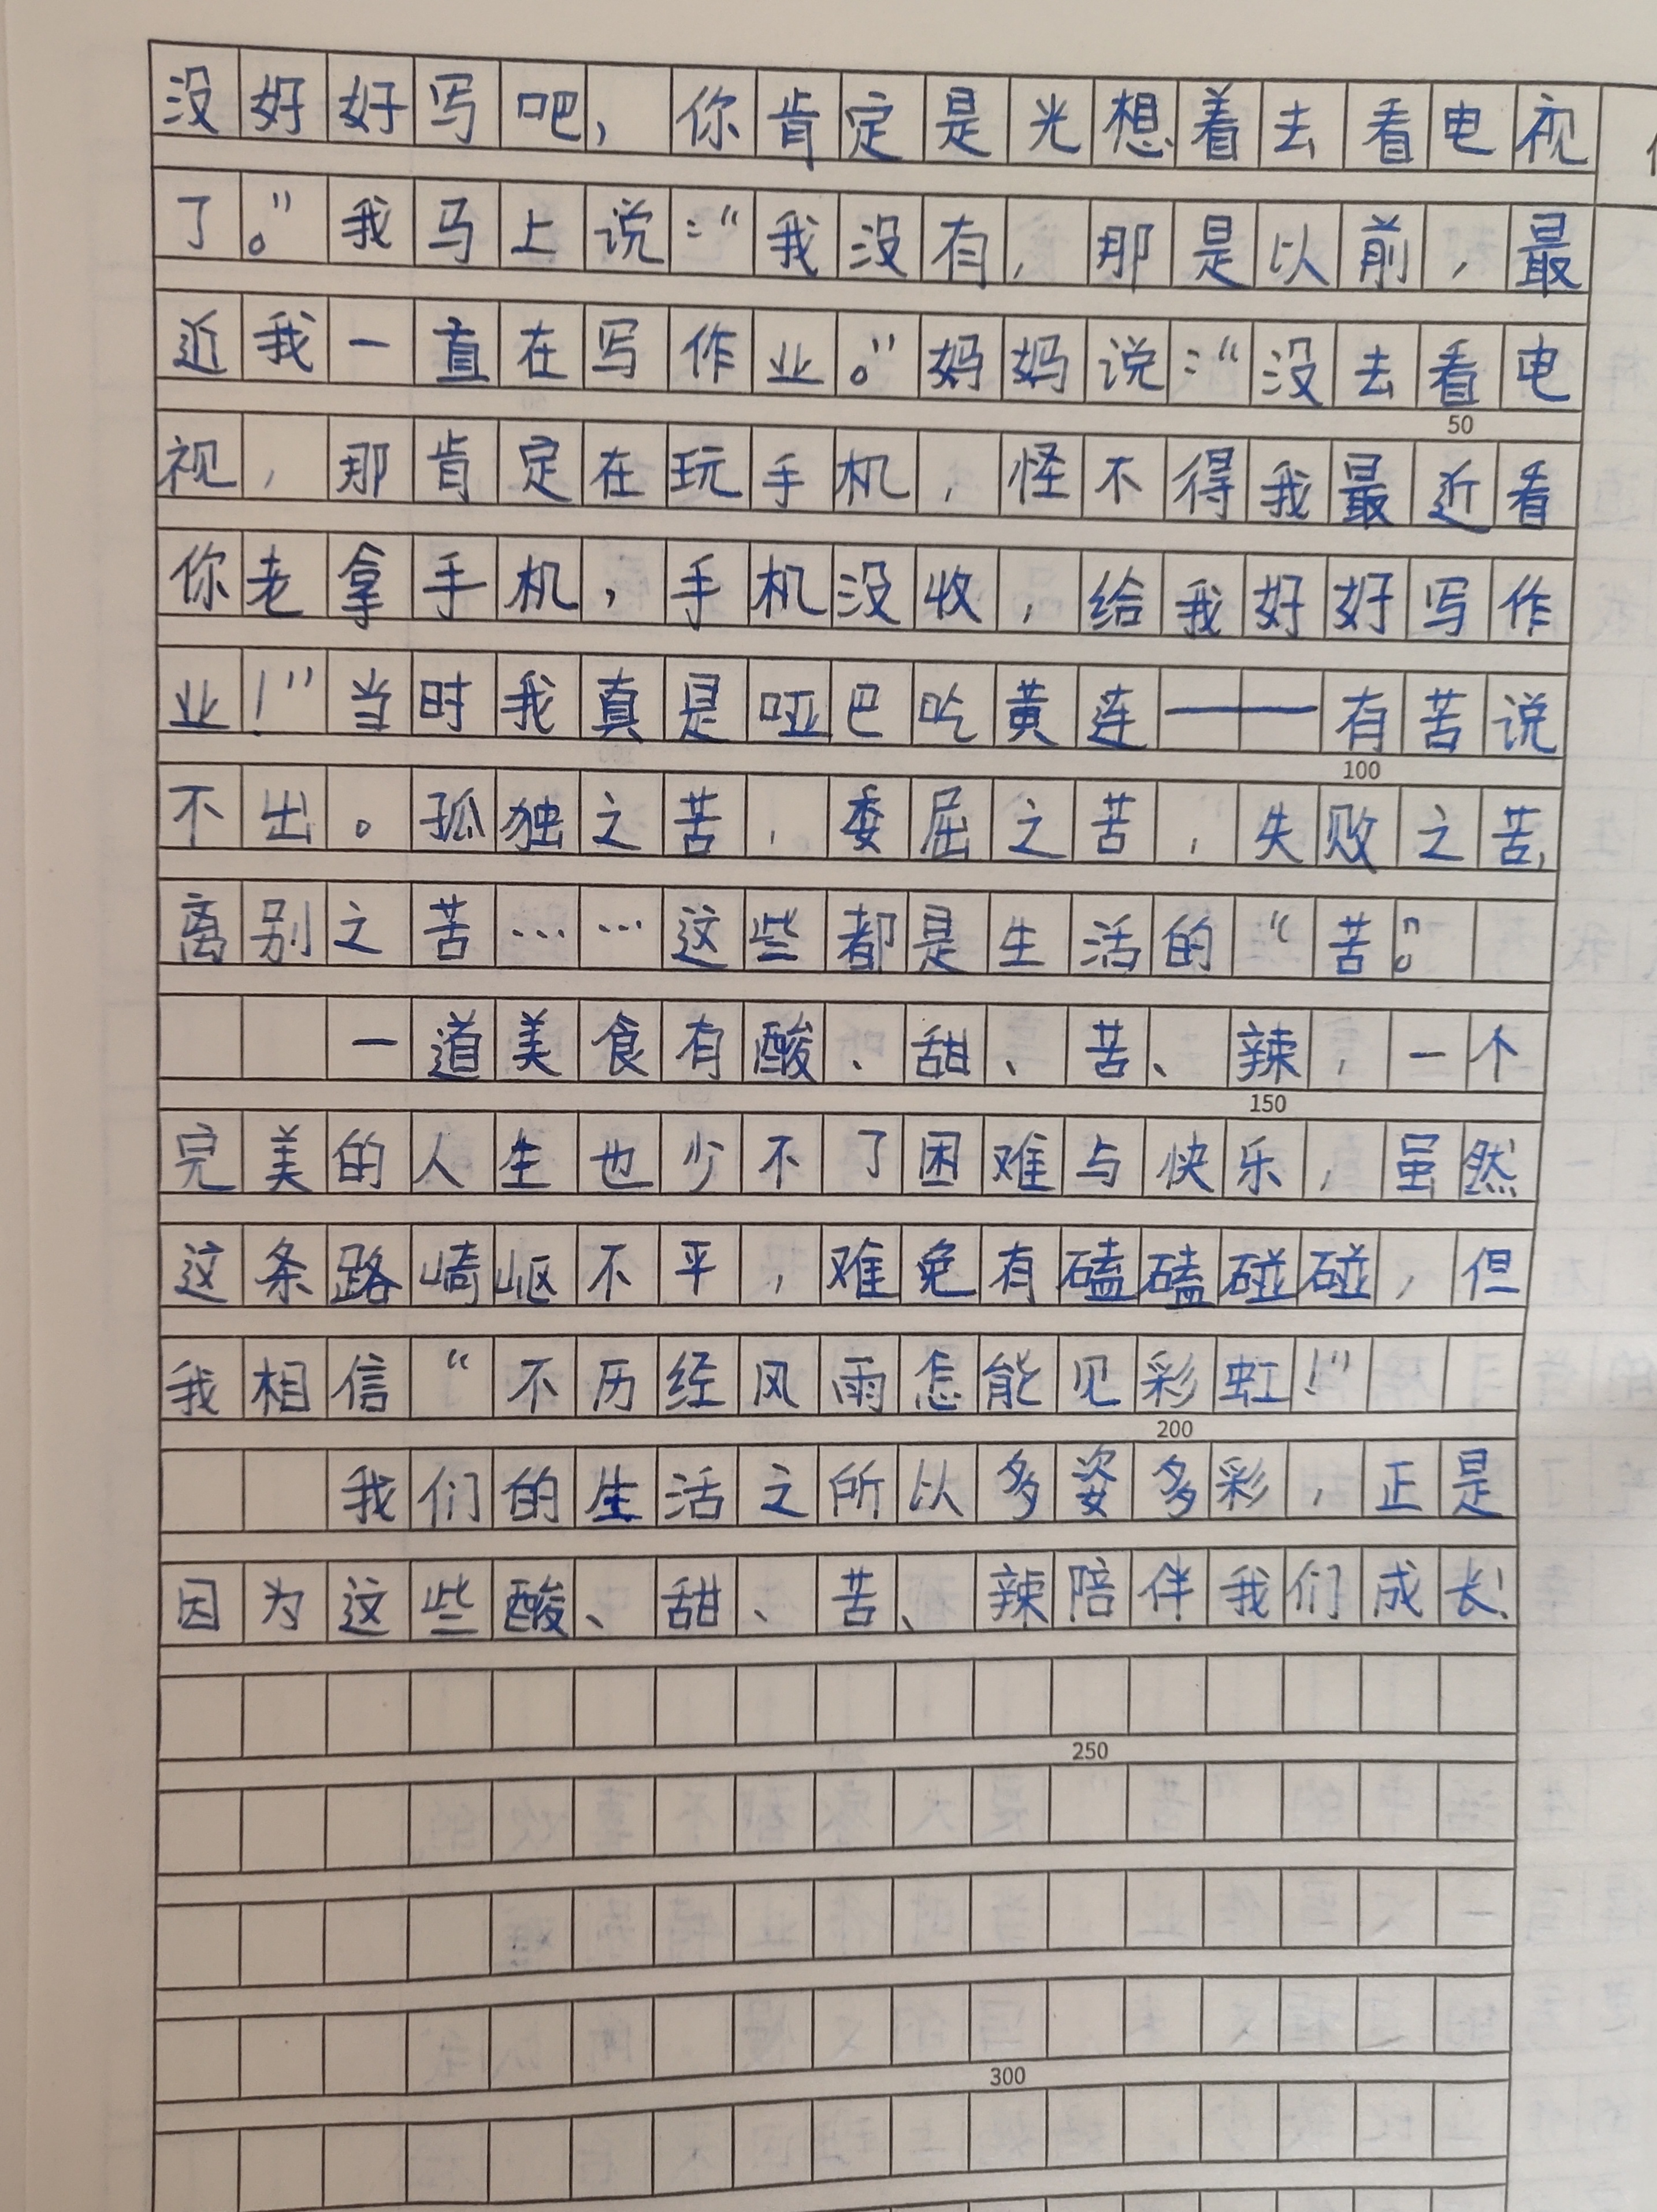 没好好写吧，你肯定是光想着去看电视
了。”我马上说：“我没有，那是以前，最
近我一直在写作业。”妈妈说：“没去看电
50
视，那肯定在玩手机，怪不得我最近看
你老拿手机，手机没收，给我好好写作
业！”当时我真是哑巴吃黄连——有苦说
100
不出。孤独之苦，委屈之苦，失败之苦，
离别之苦……这些都是生活的“苦”。
一道美食有酸、甜、苦、辣，一个
150
完美的人生也少不了困难与快乐，虽然
这条路崎岖不平，难免有磕磕碰碰，但
我相信“不历经风雨怎能见彩虹！”
200
我们的生活之所以多姿多彩，正是
因为这些酸、甜、苦、辣陪伴我们成长！
250
300